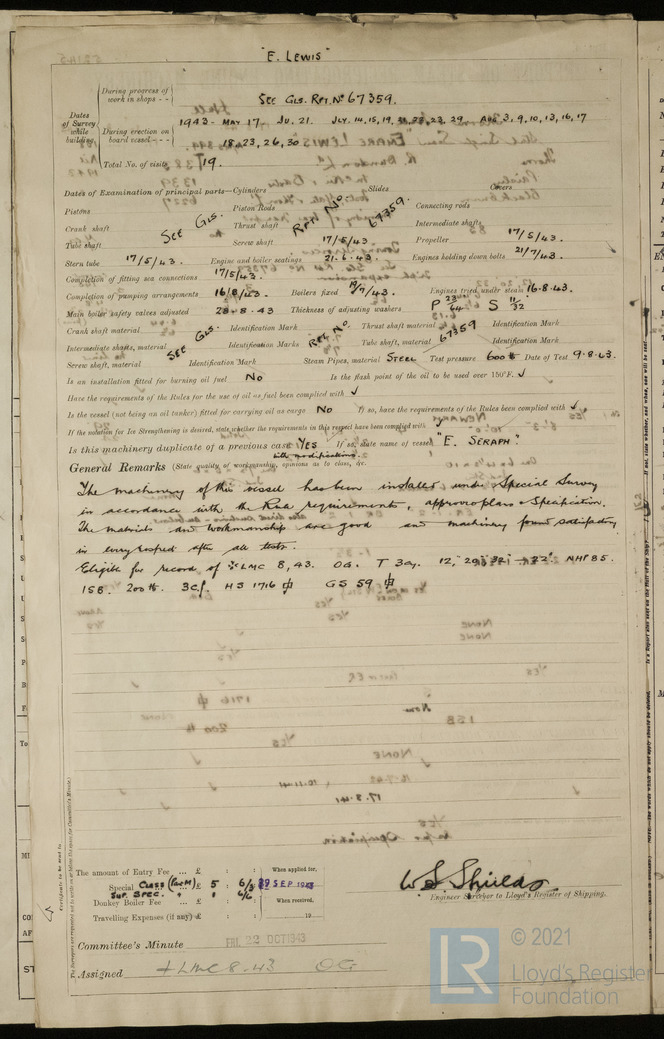 "E. LEWIS"
During progress of work in shops - -
SEE GLS. RPT. No 67359.
Dates of Survey while building
During erection on board vessel - - -
1943 - MAY 17, JU. 21. JLY. 14, 15, 19, 23, 29 AUG. 3, 9, 10, 13, 16, 17
18, 23, 26, 30
Total No. of visits 19.
Dates of Examination of principal parts—Cylinders Slides Covers
Pistons Piston Rods Connecting rods
SEE GLS. RPT. No. 67359.
Crank shaft Thrust shaft Intermediate shafts
Tube shaft Screw shaft 17/5/43. Propeller 17/5/43.
Stern tube 17/5/43. Engine and boiler seatings 21.6.43. Engines holding down bolts 21/7/43.
Completion of fitting sea connections 17/5/43.
Completion of pumping arrangements 16/8/43. Boilers fixed 19/7/43. Engines tried under steam 16.8.43.
Main boiler safety valves adjusted 28.8.43 Thickness of adjusting washers P 23/64 S 11/32
Crank shaft material Identification Mark Thrust shaft material Identification Mark
SEE GLS. RPT No. 67359
Intermediate shafts, material Identification Marks Tube shaft, material Identification Mark
Screw shaft, material Identification Mark Steam Pipes, material STEEL Test pressure 600 lb Date of Test 9.8.43.
Is an installation fitted for burning oil fuel NO Is the flash point of the oil to be used over 150°F. ✓
Have the requirements of the Rules for the use of oil as fuel been complied with ✓
Is the vessel (not being an oil tanker) fitted for carrying oil as cargo NO If so, have the requirements of the Rules been complied with ✓
If the notation for Ice Strengthening is desired, state whether the requirements in this respect have been complied with ✓
Is this machinery duplicate of a previous case YES If so, state name of vessel "E. SERAPH"
with modifications.
General Remarks (State quality of workmanship, opinions as to class, &c.
The machinery of this vessel has been installed under Special Survey
in accordance with the Rule requirements, approved plans & Specification.
The materials and workmanship are good and machinery found satisfactory
in every respect after all tests.
Eligible for record of LMC 8,43. OG. T 3cy. 12, NHP 85.
1SB. 200 lb. 3cf. HS 1716 GS 59
The amount of Entry Fee ... £ : : When applied for,
Special CLASS (F&M) £ 5 : 6/3 : 29 SEP 1943
SUP. SPEC. " 1 6/6
Donkey Boiler Fee ... £ : : When received,
Travelling Expenses (if any) £ : : 19
W S Shields
Engineer Surveyor to Lloyd's Register of Shipping.
Committee's Minute FRI. 22 OCT 1943
Assigned + LMC 8.43 OG
LR
© 2021
Lloyd's Register
Foundation